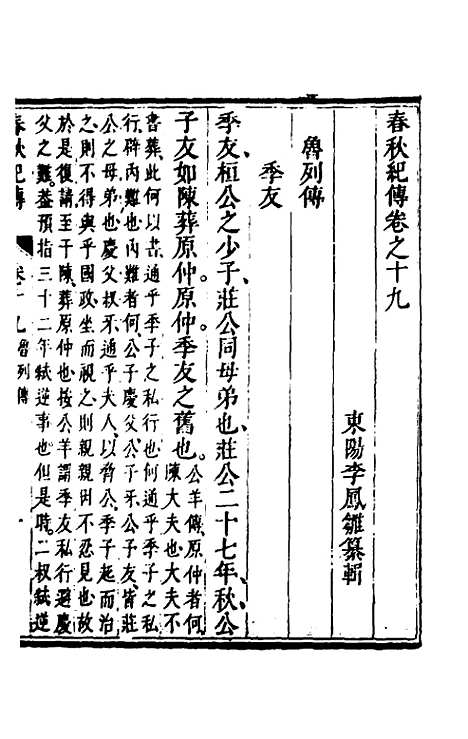 春秋紀傳卷之十九
東陽李鳳雛纂輯
魯列傳
季友
季友桓公之少子莊公同母弟也莊公二十七年秋公
子友如陳葬原仲原仲季友之舊也
公羊傳原仲者何
陳大夫也大夫不
書葬此何以書通乎季子之私行也何通乎季子之私
行辟內難也內難者何公子慶父公子牙公子友皆莊
公之母弟也慶父叔牙通乎夫人以脅公季子起而治
之則不得與乎國政坐而視之則親親因不忍見也故
於是復請至于陳葬原仲也按公羊謂季友私行避慶
父之難蓋預指三十二年弒逆事也但是時二叔弒逆
春秋紀傳
卷十九魯列傳
一